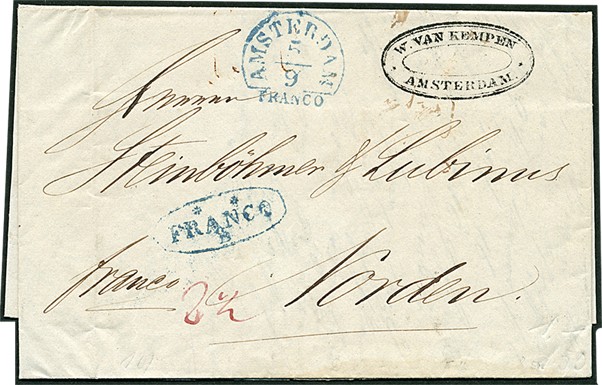 AMSTERDAM
5
9
FRANCO
W. VAN KEMPEN
AMSTERDAM.
Herren
Steinböhmer & Lubinus
FRANCO
B
franco
Norden.